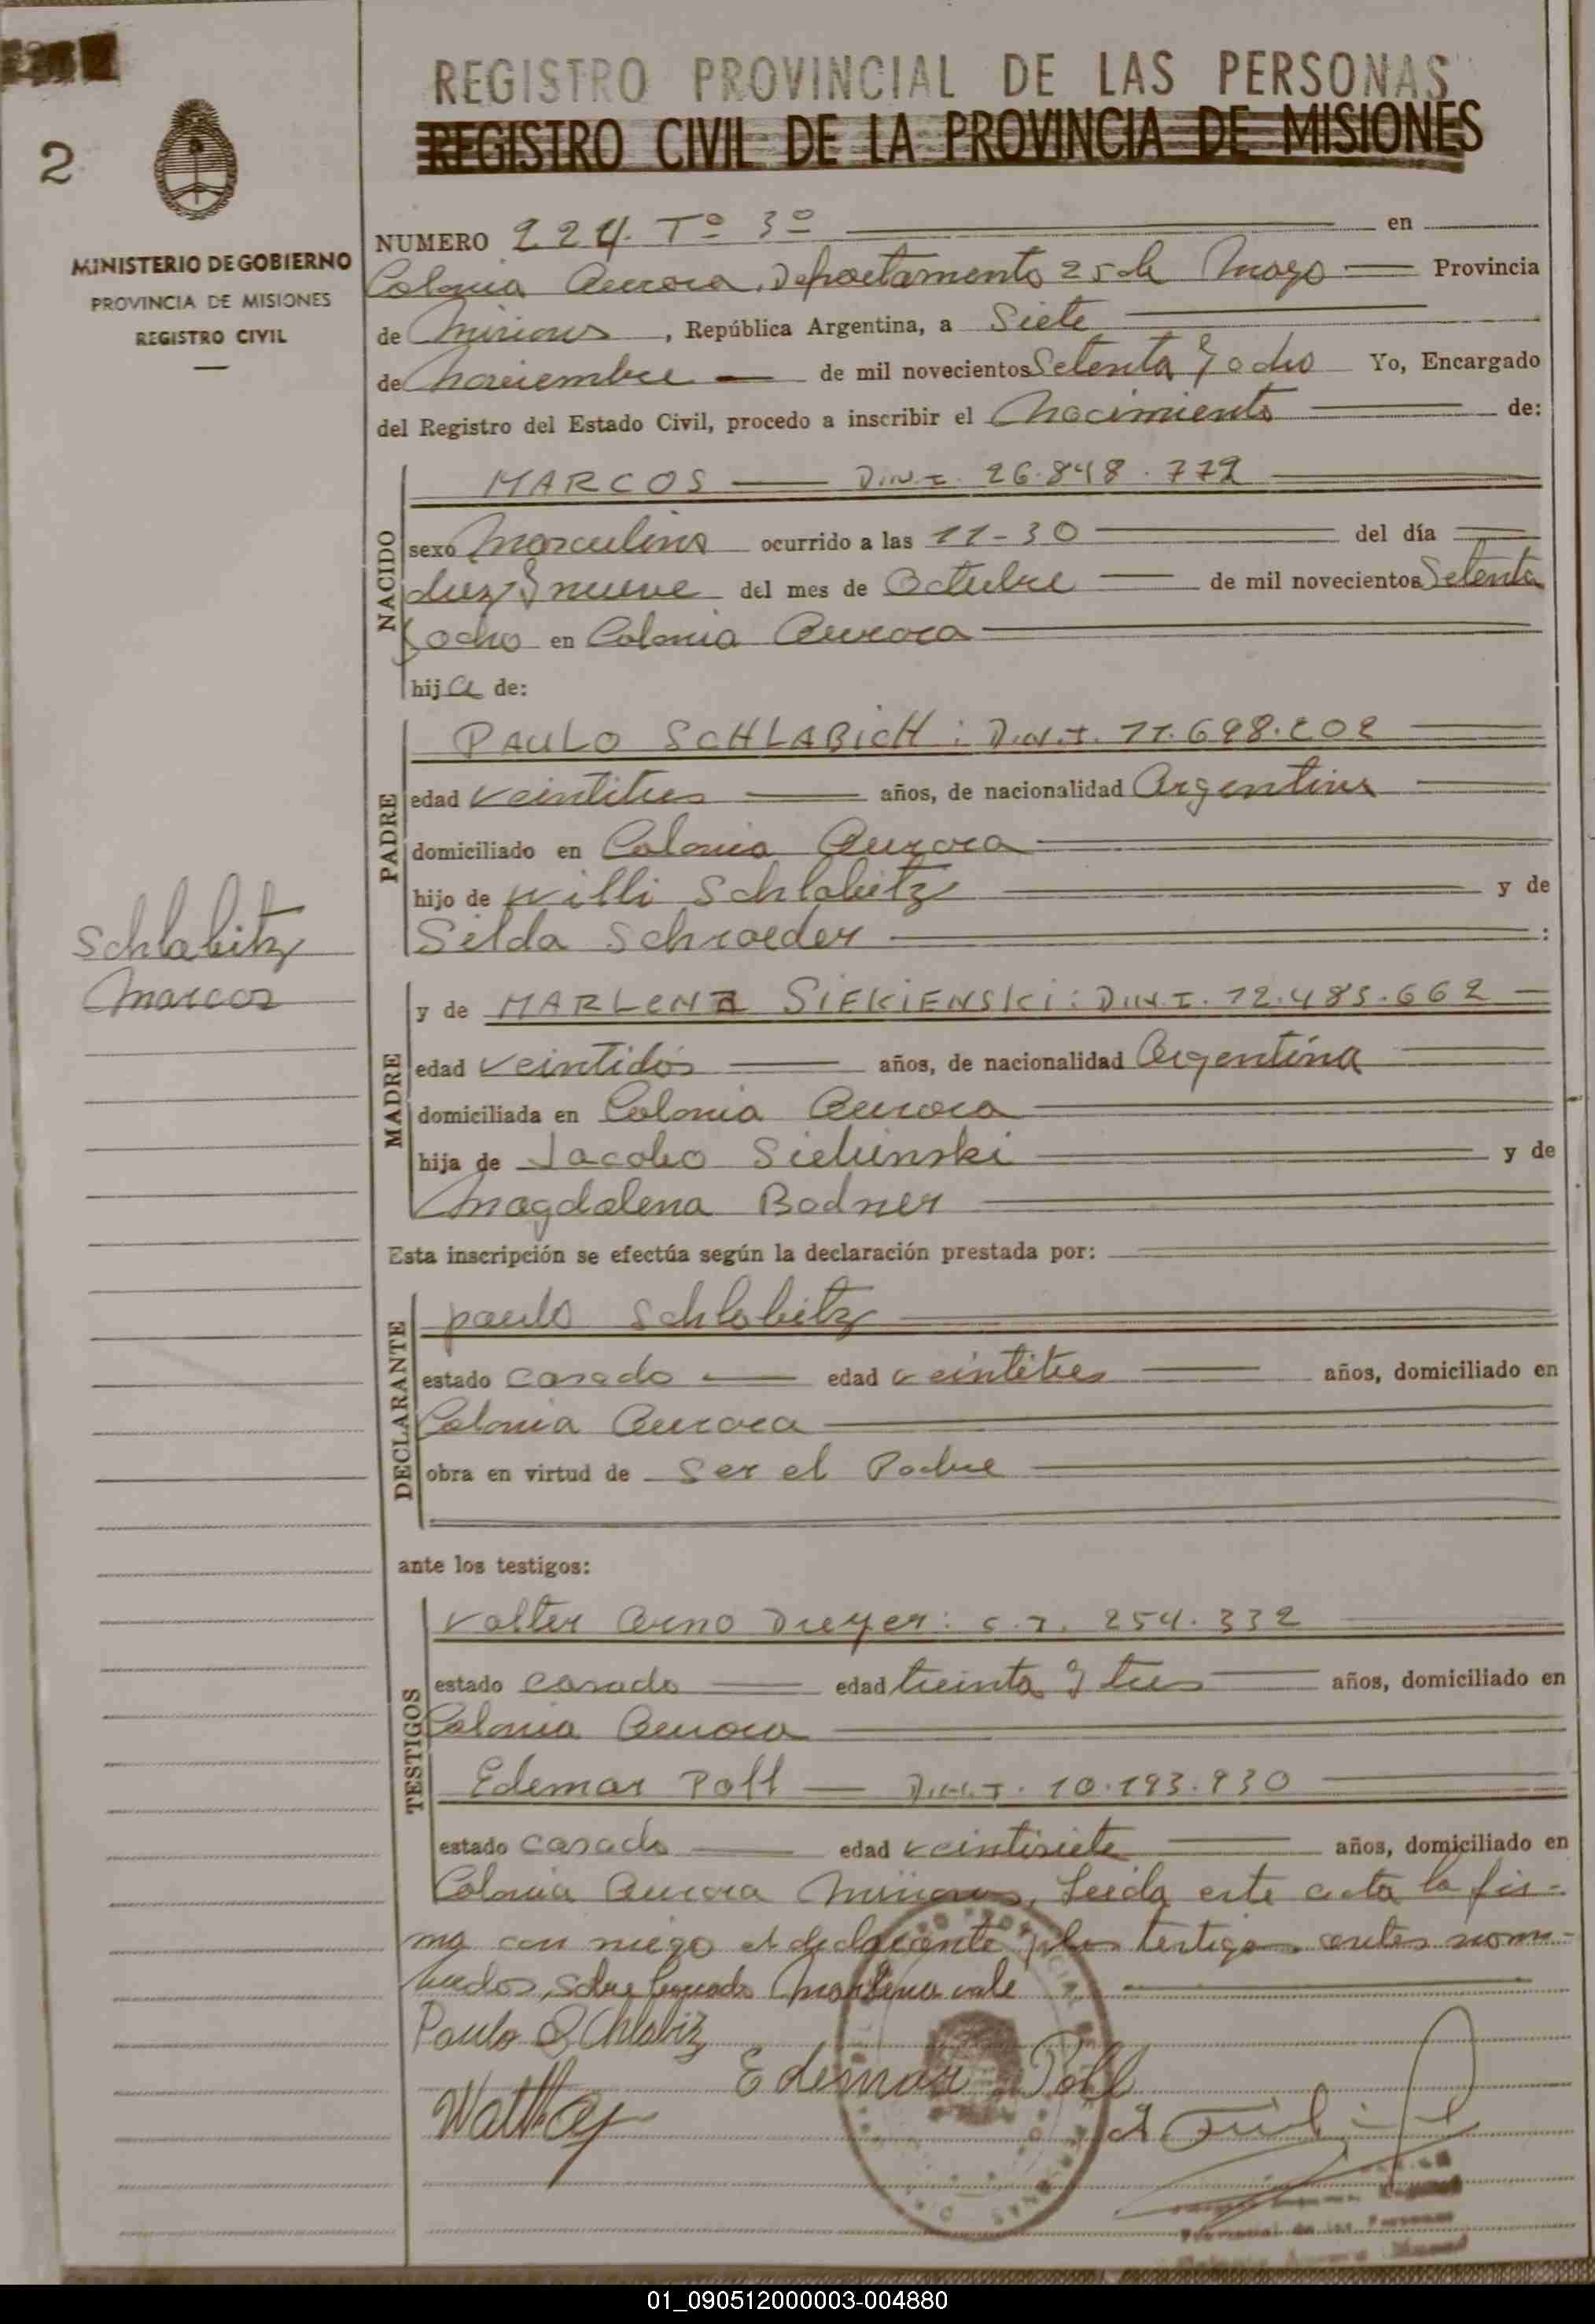 REGISTRO PROVINCIAL DE LAS PERSONAS
REGISTRO CIVIL DE LA PROVINCIA DE MISIONES
2
MINISTERIO DE GOBIERNO
PROVINCIA DE MISIONES
REGISTRO CIVIL
NUMERO 224. Tº 3º en
Colonia Aurora, Departamento 25 de Mayo Provincia
de Misiones, República Argentina, a Siete
de Noviembre de mil novecientos Setenta y ocho Yo, Encargado
del Registro del Estado Civil, procedo a inscribir el Nacimiento de:
NACIDO
MARCOS D.N.I. 26.848.779
sexo Masculino ocurrido a las 11-30 del día
diez y nueve del mes de Octubre de mil novecientos Setenta
y ocho en Colonia Aurora
hija de:
PADRE
PAULO SCHLABICH: D.N.I. 11.698.202
edad veintitres años, de nacionalidad Argentina
domiciliado en Colonia Aurora
hijo de Willi Schlabitz y de
Silda Schroeder :
Schlabitz
Marcos
MADRE
y de MARLENA SIEKIENSKI: D.N.I. 12.485.662
edad veintidós años, de nacionalidad Argentina
domiciliada en Colonia Aurora
hija de Jacobo Siekinski y de
Magdalena Bodner
Esta inscripción se efectúa según la declaración prestada por:
DECLARANTE
Paulo Schlabitz
estado casado edad veintitres años, domiciliado en
Colonia Aurora
obra en virtud de Ser el Padre
ante los testigos:
TESTIGOS
Valter Arno Dreyer: C.I. 254.332
estado casado edad treinta y tres años, domiciliado en
Colonia Aurora
Edemar Poll D.N.I. 10.193.930
estado casado edad veintisiete años, domiciliado en
Colonia Aurora Misiones, Leida esta acta la fir-
ma con migo el declarante y los testigos antes nom-
brados, sobre borrado Marlena vale
Paulo Schlabiz
Edemar Poll
Provincial de las Personas
01_090512000003-004880